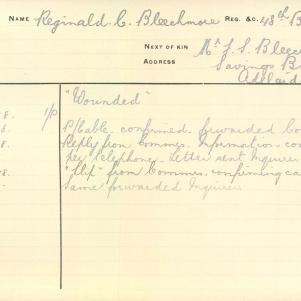 NAME Reginald C. Bleechmore REG. &C. 48th B
NEXT OF KIN Mr J. S. Bleec
ADDRESS Savings B
Adelaid
"Wounded"
8. 1/P P/Cable confirmed forwarded Co
8. Reply from Commrs. Information con
per telephone. Letter sent Inquirer
8. "Slip" from Commrs. confirming ca
Same forwarded Inquirer